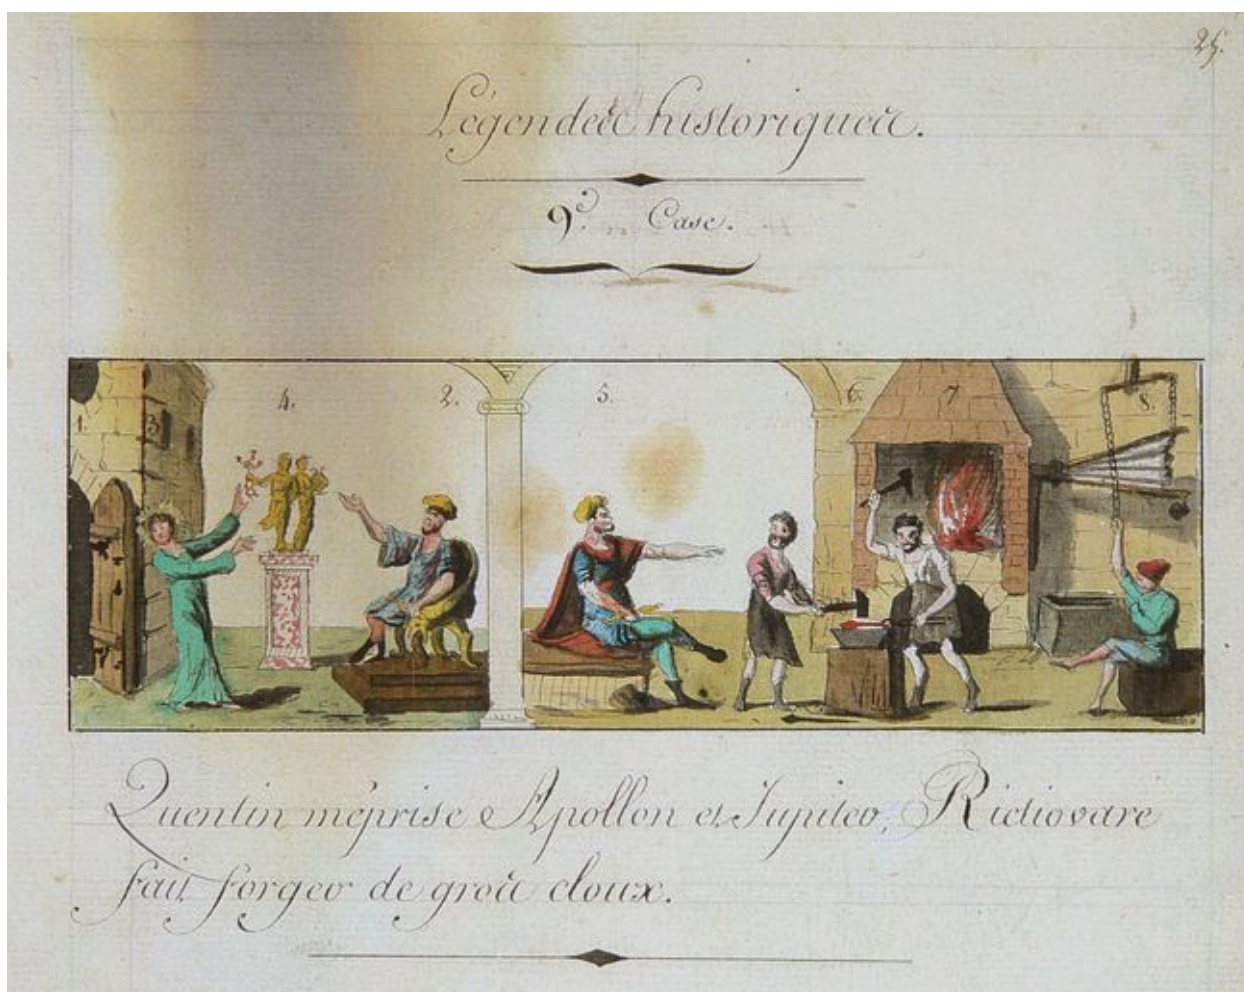 25.
Légendes historiques.
9.e Case.
1. 3. 4. 2. 5. 6. 7 8.
Quentin méprise Apollon et Jupiter, Rictiovare
fait forger de gros cloux.